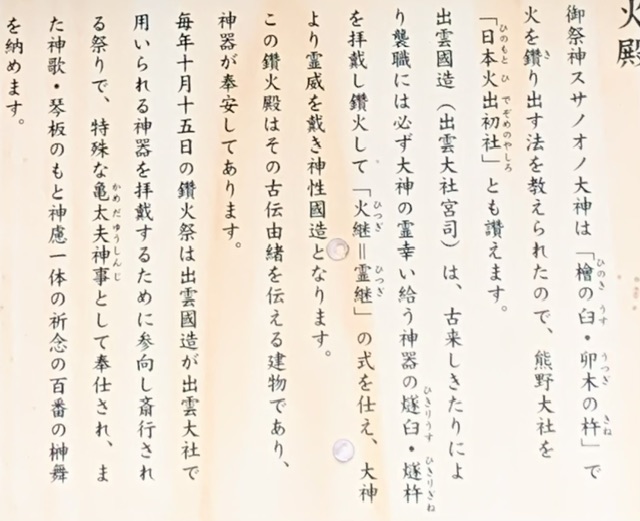 火殿
御祭神スサノオノ大神は「檜の臼・卯木の杵」で
火を鑽り出す法を教えられたので、熊野大社を
「日本火出初社」とも讃えます。
出雲國造（出雲大社宮司）は、古来しきたりによ
り襲職には必ず大神の霊幸い給う神器の燧臼・燧杵
を拝戴し鑽火して「火継＝霊継」の式を仕え、大神
より霊威を戴き神性國造となります。
この鑽火殿はその古伝由緒を伝える建物であり、
神器が奉安してあります。
毎年十月十五日の鑽火祭は出雲國造が出雲大社で
用いられる神器を拝戴するために参向し斎行され
る祭りで、特殊な亀太夫神事として奉仕され、ま
た神歌・琴板のもと神慮一体の祈念の百番の榊舞
を納めます。